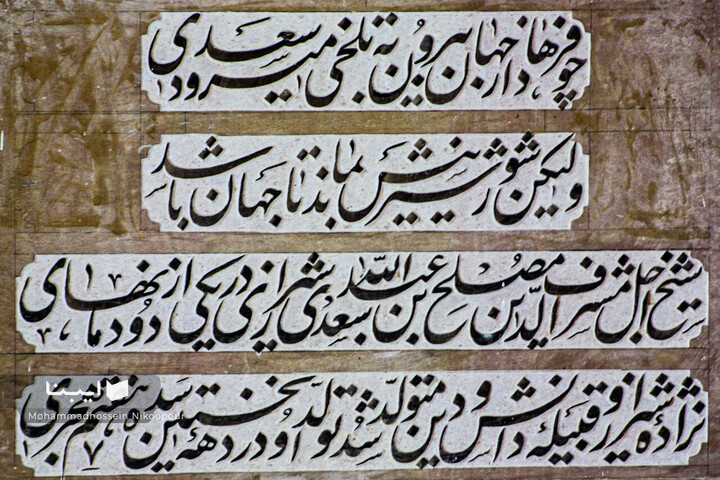 چو فرهاد از جهان بیرون به تلخی میرود سعدی
ولیکن شور شیرینش بماند تا جهان باشد
شیخ اجل مشرف الدین مصلح بن عبدالله سعدی شیرازی در یکی از دودمانهای
نژاده شیراز و قبیله دانش و دین متولد شد تولد او در دههٔ نخستین سدهٔ هفتم هجری
لیبنا
Mohammadhossein Nikoopour